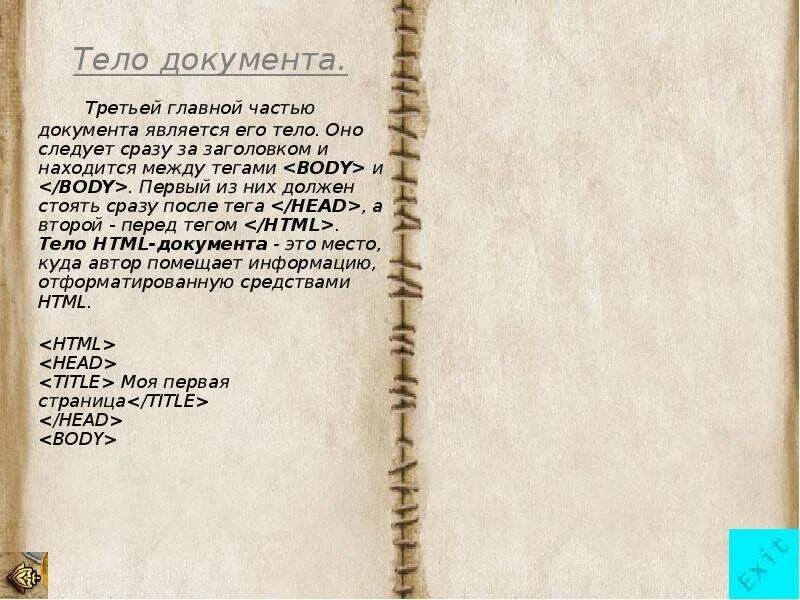 Тело документа.
Третьей главной частью
документа является его тело. Оно
следует сразу за заголовком и
находится между тегами <BODY> и
</BODY>. Первый из них должен
стоять сразу после тега </HEAD>, а
второй - перед тегом </HTML>.
Тело HTML-документа - это место,
куда автор помещает информацию,
отформатированную средствами
HTML.
<HTML>
<HEAD>
<TITLE> Моя первая
страница</TITLE>
</HEAD>
<BODY>
Exit